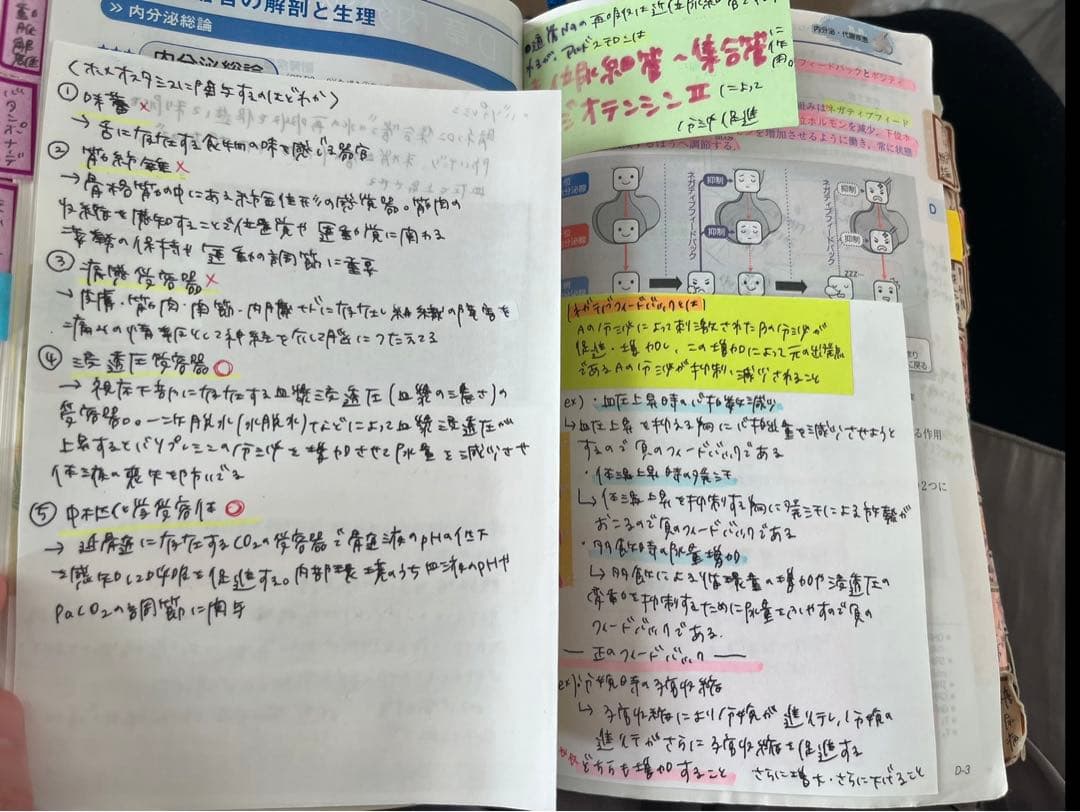 の解剖と生理
≫ 内分泌総論
内分泌総論
〈ホメオスタシスに関与するのはどれか〉
① 味蕾 ×
→ 舌に存在する食物の味を感じる器官
② 筋紡錘 ×
→ 骨格筋の中にある紡錘形の感覚器。筋肉の
収縮を感知することで位置覚や運動覚に関わる
姿勢の保持や運動の調節に重要
③ 痛覚受容器 ×
→ 皮膚・筋肉・関節・内臓などに存在し組織の障害を
痛みの情報として神経を介して脳につたえてる
④ 浸透圧受容器 ○
→ 視床下部に存在する血漿浸透圧(血漿の濃さ)の
受容器。一次脱水(水脱水)などによって血漿浸透圧が
上昇するとバソプレシンの分泌を増加させて尿量を減少させ
体液の喪失を防いでる
⑤ 中枢化学受容体 ○
→ 延髄に存在するCO2の受容器で髄液のpHの低下
を感知し呼吸を促進する。内部環境のうち血液のpHや
PaCO2の調節に関与
通常Naの再吸収は近位尿細管で
アルドステロンは
位尿細管〜集合管に作用。
ジオテンシンⅡによって
分泌促進
内分泌・代謝疾患
フィードバックとポジティ
組みはネガティブフィード
位ホルモンを減少、下位ホ
を増加させるように働き、常に状態
するほうへ調節する。
ネガティブフィードバック
抑制
抑制
ネガティブフィードバック
抑制
抑制
zzz…
D
ネガティブフィードバックとは
Aの分泌によって刺激されたBの分泌が
促進・増加し、この増加によって元の出発点
であるAの分泌が抑制、減少されること
ex)・血圧上昇時の心拍数減少
↳血圧上昇を抑える為に心拍出量を減少させようと
するので負のフィードバックである
・体温上昇時の発汗
↳ 体温上昇を抑制する為に発汗による放熱が
おこるので負のフィードバックである
・多飲時の尿量増加
↳多飲による循環量の増加や浸透圧の
変動を抑制するために尿量をふやすので負の
フィードバックである.
― 正のフィードバック ―
ex)・分娩時の子宮収縮
↳ 子宮収縮により分娩が進行し、分娩の
進行がさらに子宮収縮を促進する
どちらも増加すること さらに増大・さらに下げること
に戻る
る作用
2つに
D-3